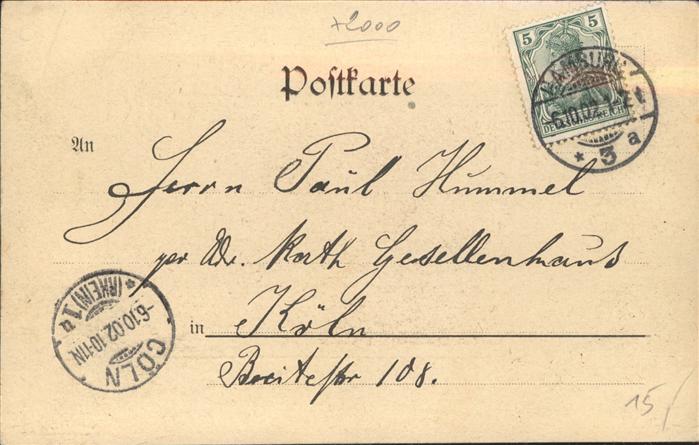 x2000
Postkarte
5
DEUTSCHES REICH
HAMBURG 1
6.10.02. 1-2 N
* 3 a
An
Herrn Paul Hummel
per Adr. Kath Gesellenhaus
in Köln
Breitestr 108.
CÖLN
-6.10.02 10-11N
* (RHEIN) 1 q
15